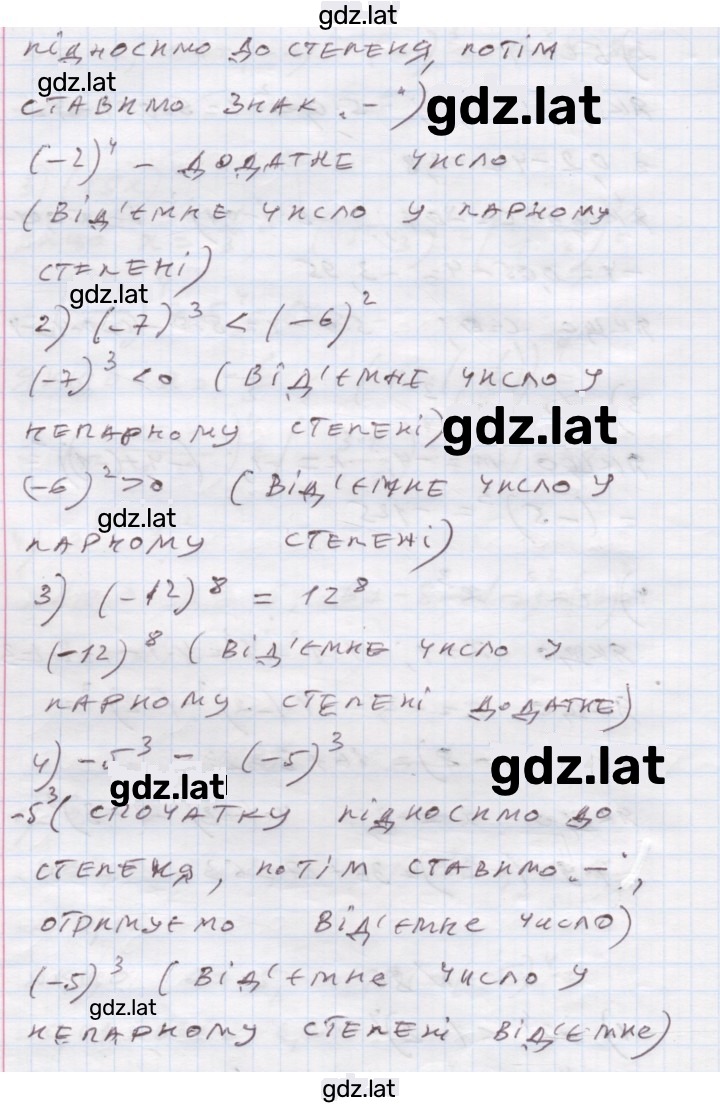 gdz.lat
підносимо до степеня, потім
gdz.lat
ставимо знак „–“)
gdz.lat
(-2)⁴ – додатне число
(від'ємне число у парному
степені)
gdz.lat
2) (-7)³ < (-6)²
(-7)³ < 0 (від'ємне число у
непарному степені)
gdz.lat
(-6)² > 0 (від'ємне число у
gdz.lat
парному степені)
3) (-12)⁸ = 12⁸
(-12)⁸ (від'ємне число у
парному степені додатне)
4) -5³ = (-5)³
gdz.lat
gdz.lat
-5³ (спочатку підносимо до
степеня, потім ставимо „–“,
отримуємо від'ємне число)
(-5)³ (від'ємне число у
gdz.lat
непарному степені від'ємне)
gdz.lat